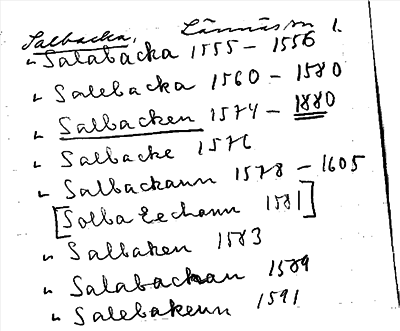 Salbacka, Lännäs sn 1.
" Salabacka 1555 – 1556
" Salebacka 1560 – 1580
" Salbacken 1574 – 1880
" Salbacke 1576
" Salbackann 1578 – 1605
[Solba Echann 1581]
" Salbaken 1583
" Salabackan 1589
" Salebakenn 1591